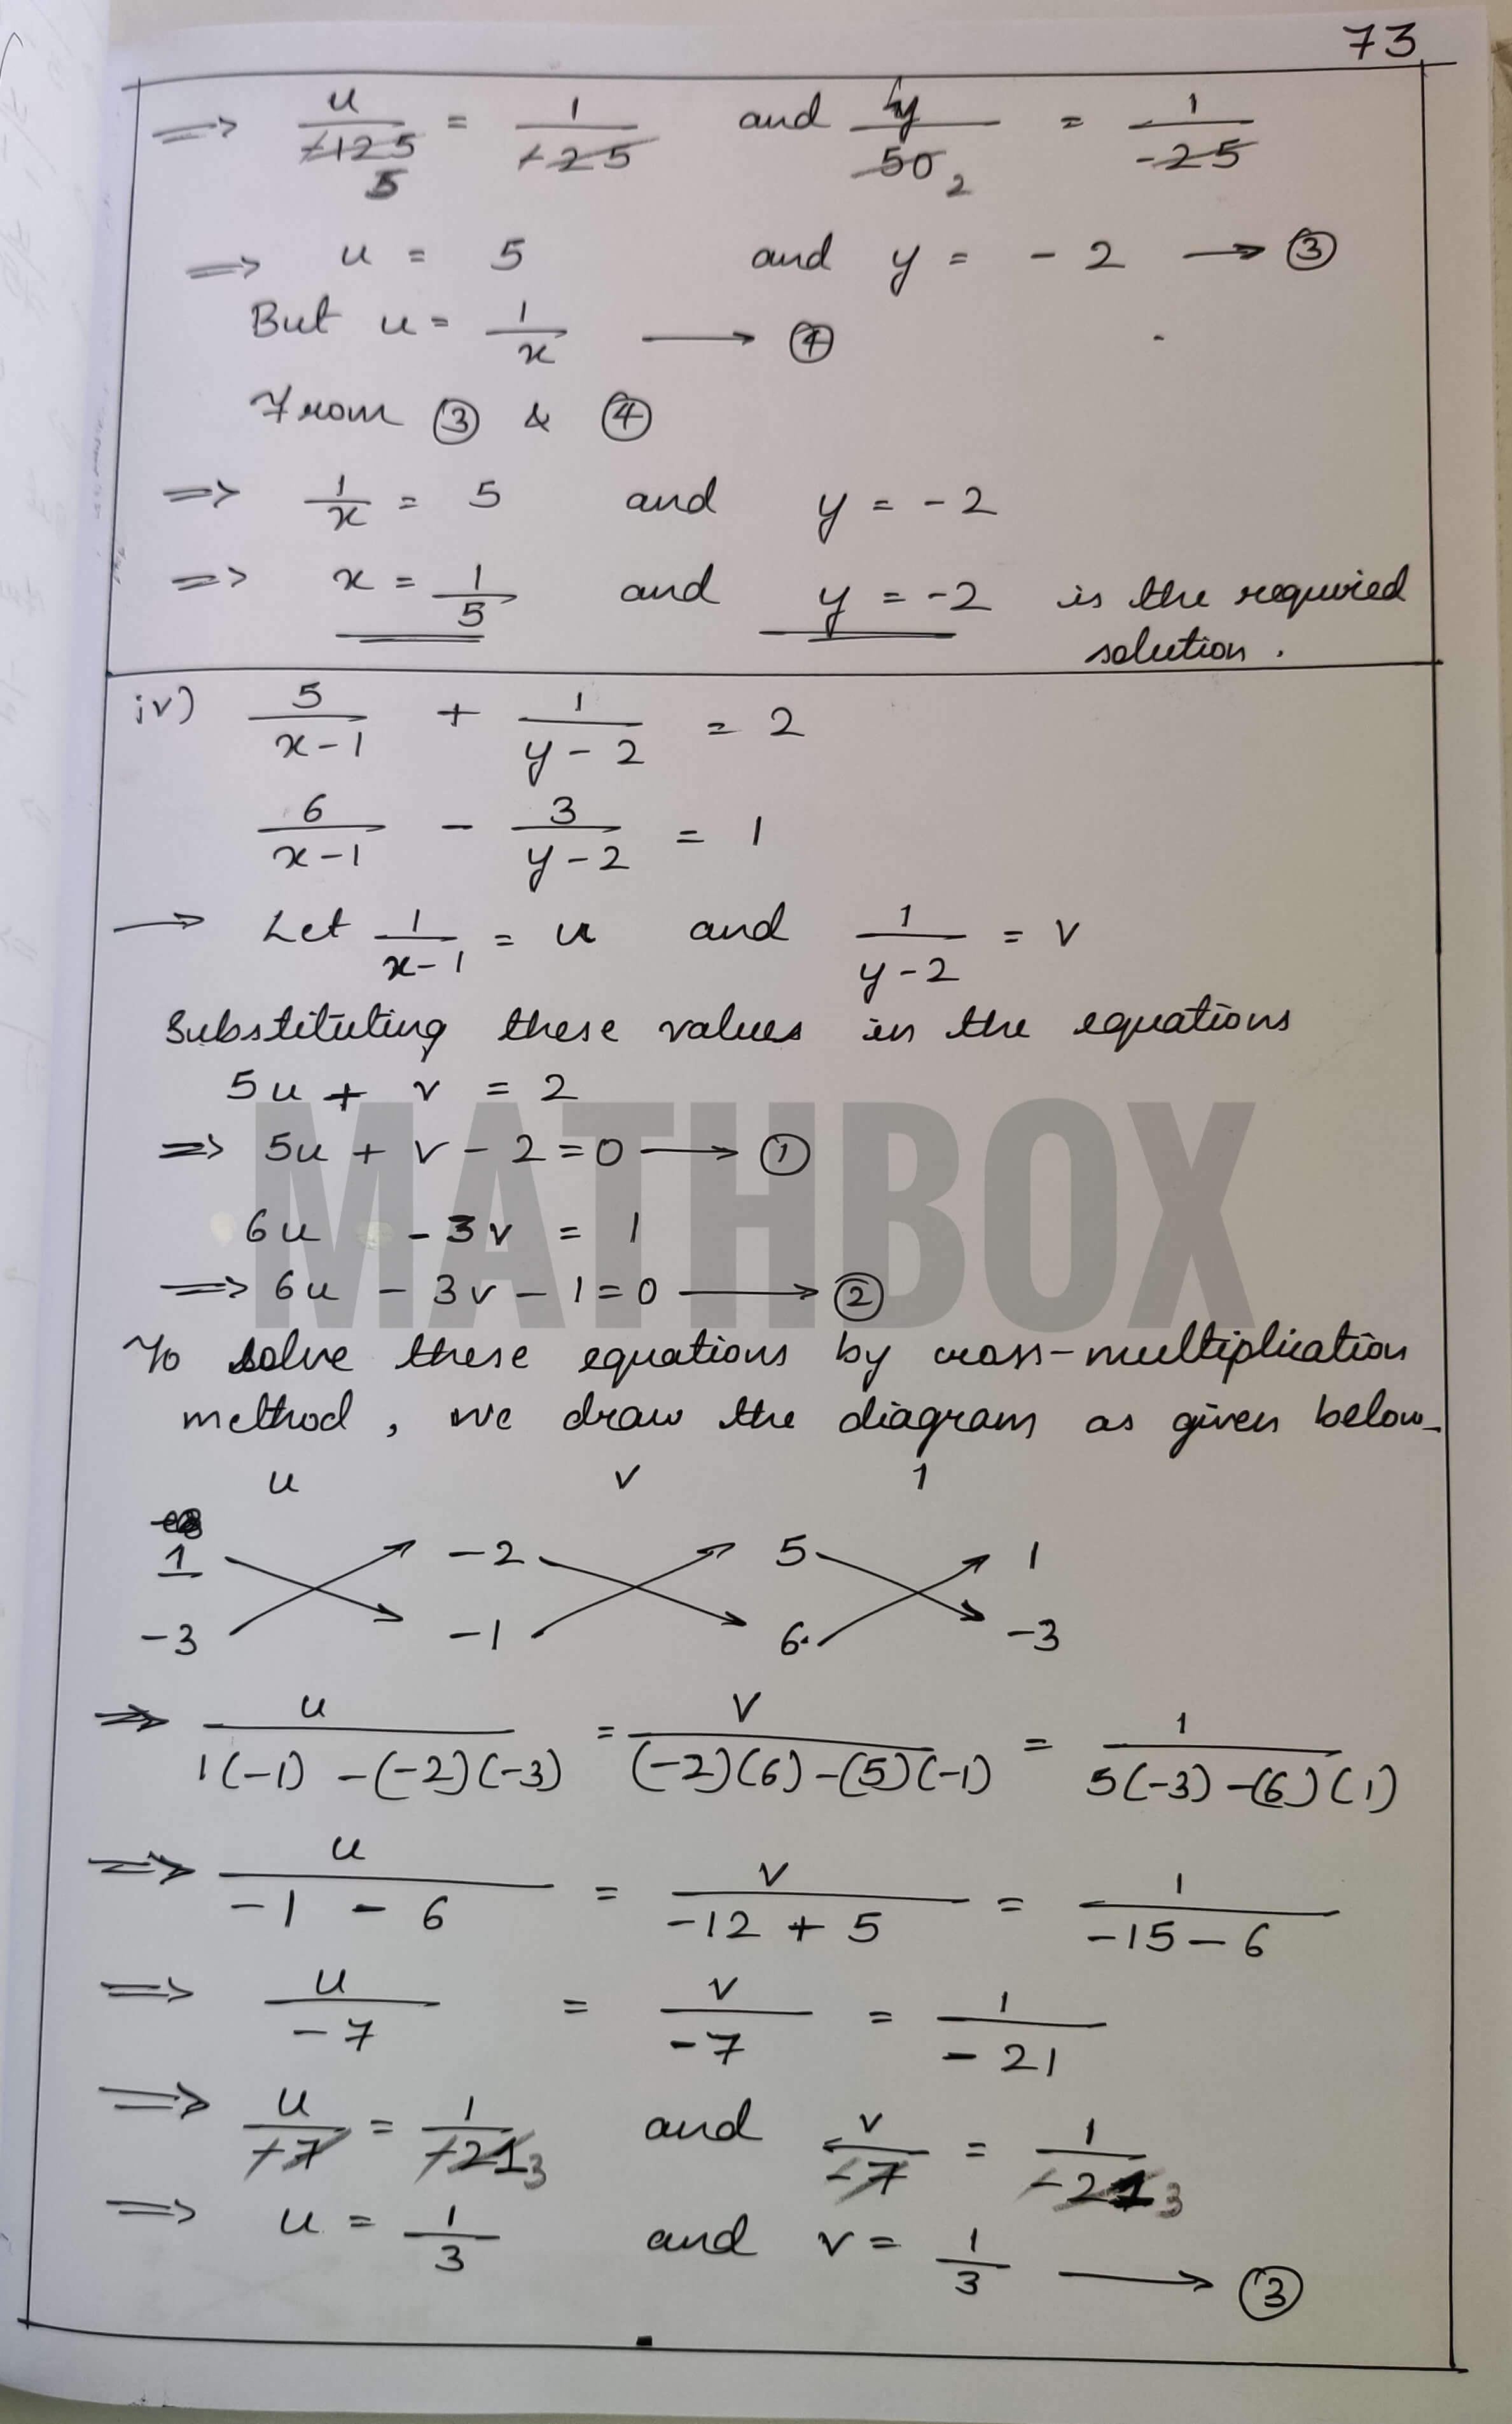 73
⇒ u/-125 5 = 1/-25 and y/50 2 = 1/-25
⇒ u = 5 and y = - 2 → ③
But u = 1/x → ④
From ③ & ④
⇒ 1/x = 5 and y = - 2
⇒ x = 1/5 and y = -2 is the required
solution.
iv) 5/(x-1) + 1/(y-2) = 2
6/(x-1) - 3/(y-2) = 1
→ Let 1/(x-1) = u and 1/(y-2) = v
Substituting these values in the equations
5u + v = 2
⇒ 5u + v - 2 = 0 → ①
MATHBOX
6u - 3v = 1
⇒ 6u - 3v - 1 = 0 → ②
To solve these equations by cross-multiplication
method, we draw the diagram as given below-
u v 1
1 -2 5 1
-3 -1 6 -3
⇒ u/(1(-1) - (-2)(-3)) = v/((-2)(6) - (5)(-1)) = 1/(5(-3) - (6)(1))
⇒ u/(-1 - 6) = v/(-12 + 5) = 1/(-15 - 6)
⇒ u/-7 = v/-7 = 1/-21
⇒ u/-7 = 1/-21 3 and v/-7 = 1/-21 3
⇒ u = 1/3 and v = 1/3 → ③